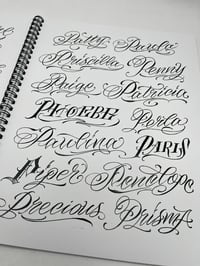 Patty Paula
Priscilla Penny
Paige Patricia
PHOEBE Perla
Paulina PARIS
Piper Penelope
Precious Prisma